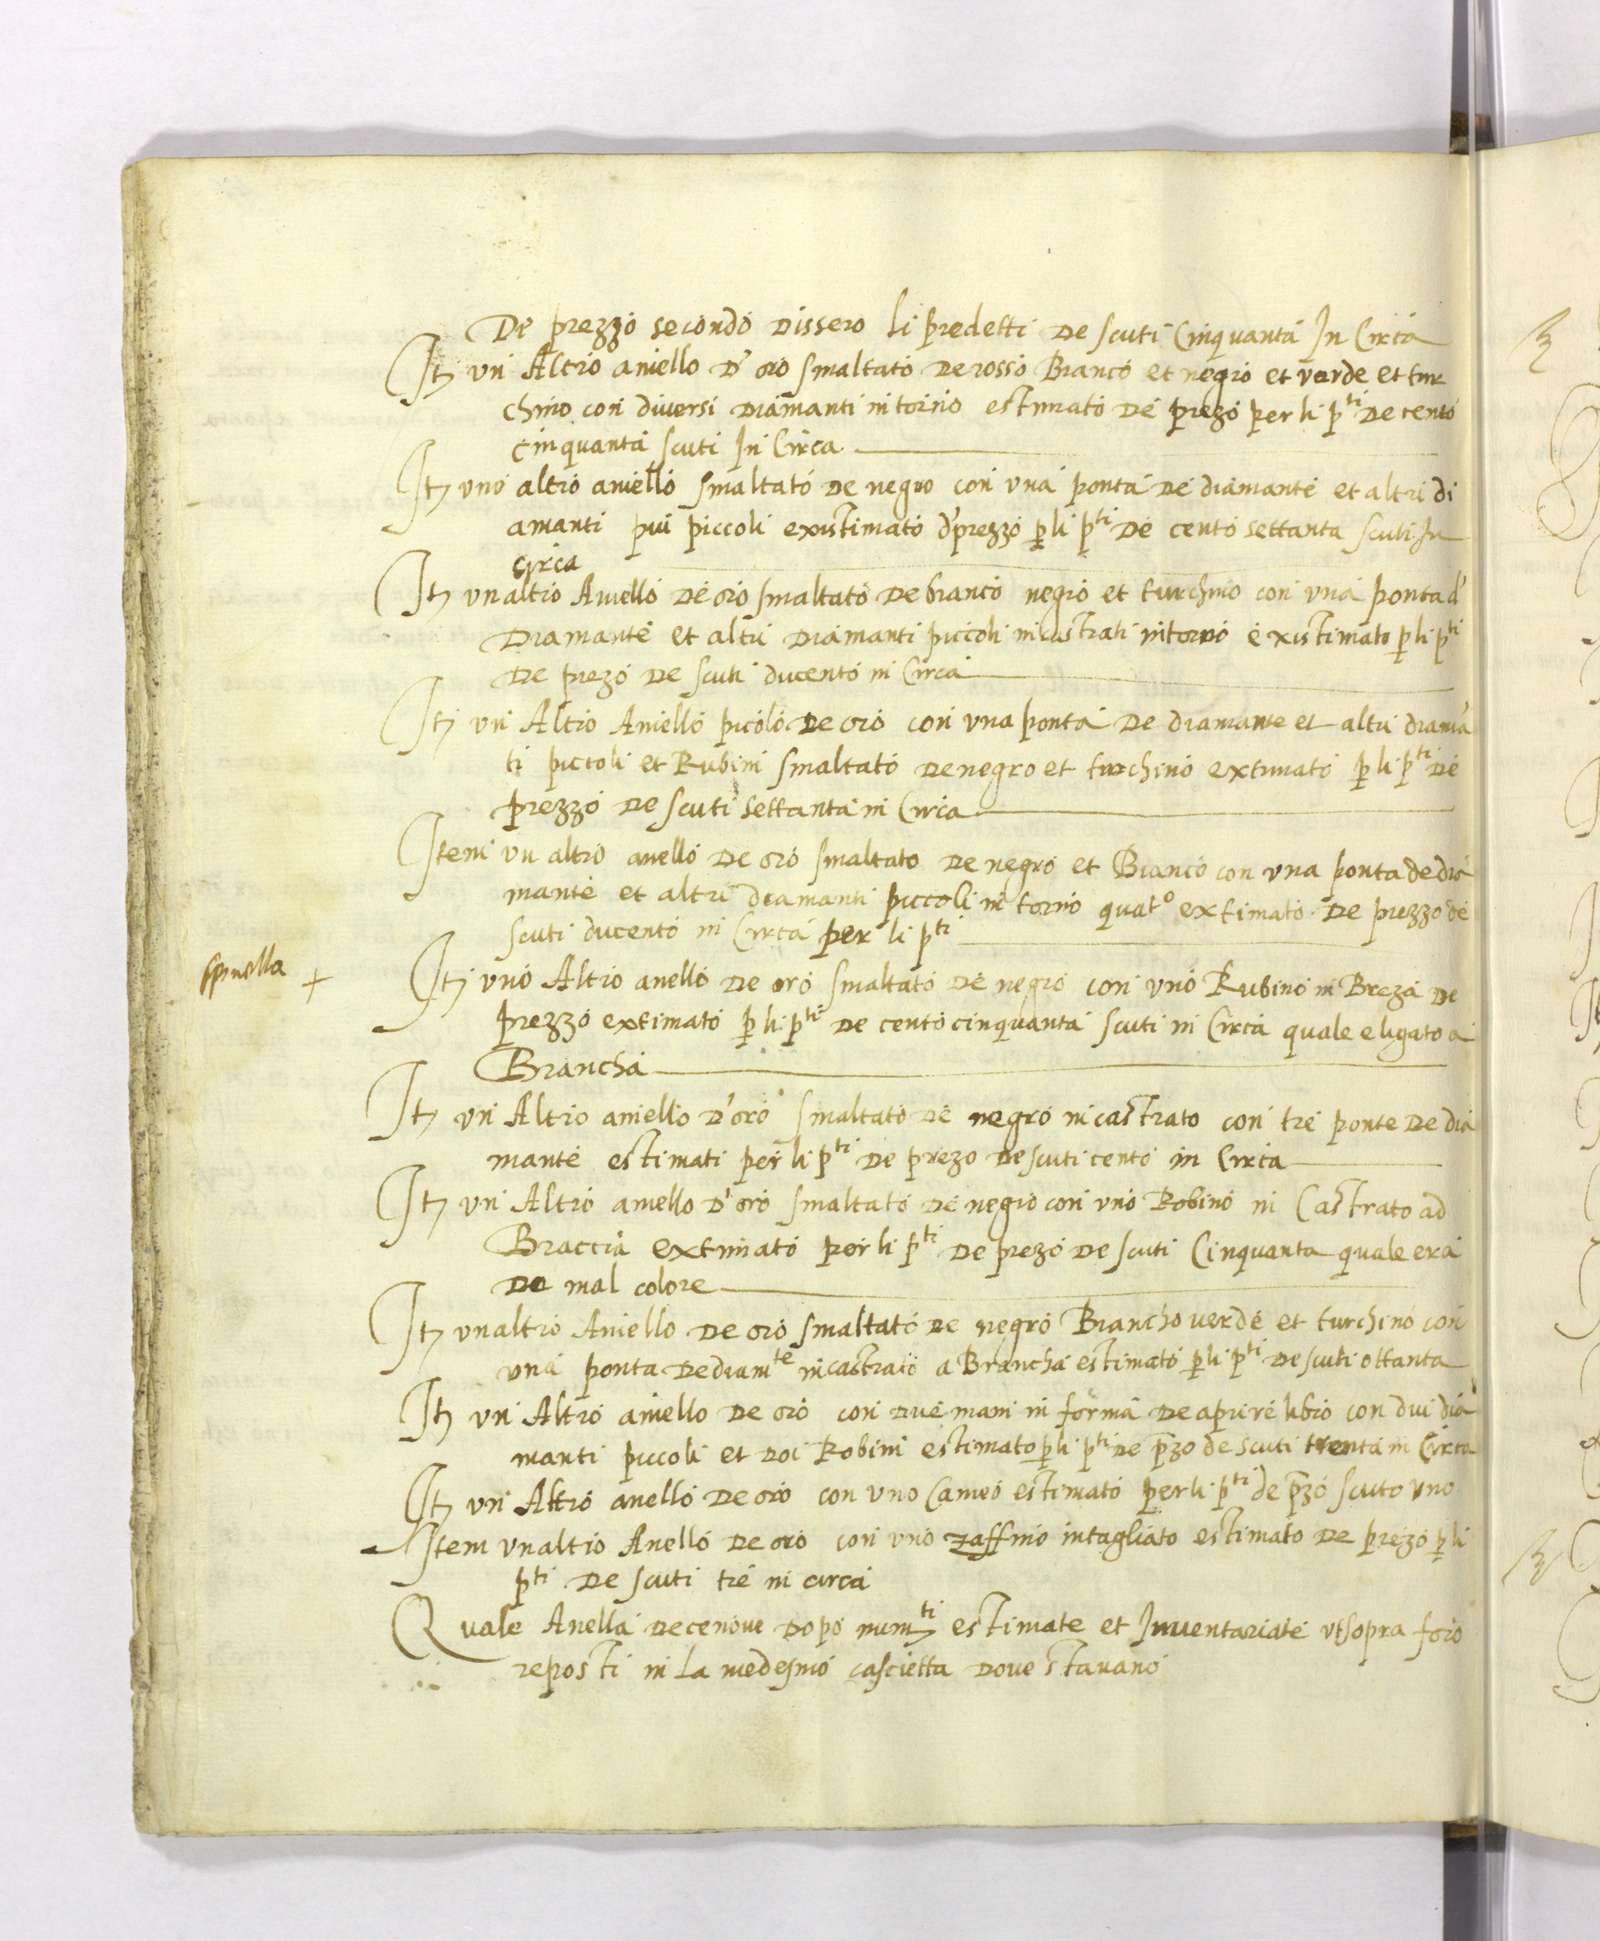 De prezzo secondo dissero li predetti de scuti Cinquanta In Circa
It un Altro aniello d' oro smaltato de rosso Bianco et negro et verde et tur
chino con diversi diamanti intorno estimato de prezo per li p.ti de cento
cinquanta scuti In Circa
It uno altro aniello smaltato de negro con una ponta de diamante et altri di
amanti piu piccoli existimato d' prezzo p li p.ti de cento settanta scuti In
circa
It un altro Aniello de oro smaltato de bianco negro et turchino con una ponta d'
Diamante et altri diamanti piccoli incastrati intorno existimato p li p.ti
de prezo de scuti ducento in Circa
It un Altro Aniello picolo de oro con una ponta de diamante et altri diama
ti piccoli et Rubini smaltato de negro et turchino extimato p li p.ti de
prezzo de scuti settanta in Circa
Item un altro anello de oro smaltato de negro et Bianco con una ponta de dia
mante et altri diamanti piccoli in torno quat.o extimato de prezzo de
scuti ducento in Circa per li p.ti
spinella +
It uno Altro anello de oro smaltato de negro con uno Rubino in Breza de
prezzo extimato p li p.ti de cento cinquanta scuti in Circa quale e ligato a
Brancha
It un Altro aniello d'oro smaltato de negro incastrato con tre ponte de dia
mante estimati per li p.ti de prezo de scuti cento in Circa
It un Altro aniello d'oro smaltato de negro con uno Robino in Castrato ad
Braccia extimato per li p.ti de prezo de scuti Cinquanta quale era
de mal colore
It un altro Aniello de oro smaltato de negro Biancho verde et turchino con
una ponta de diam.te incastrato a Brancha estimato p li p.ti de scuti ottanta
It un Altro aniello de oro con due mani in forma de aprire libro con dui dia
manti piccoli et doi Robini estimato p li p.ti de pzo de scuti trenta in Circa
It un Altro anello de oro con uno Cameo estimato per li p.ti de pzo scuto uno
Item un altro Anello de oro con uno zaffino intagliato estimato de prezo p li
p.ti de scuti tre in circa
Quale Anella decenove dopo num.ti estimate et Inventariate ut sopra foro
reposti in la medesmo cascietta dove stavano